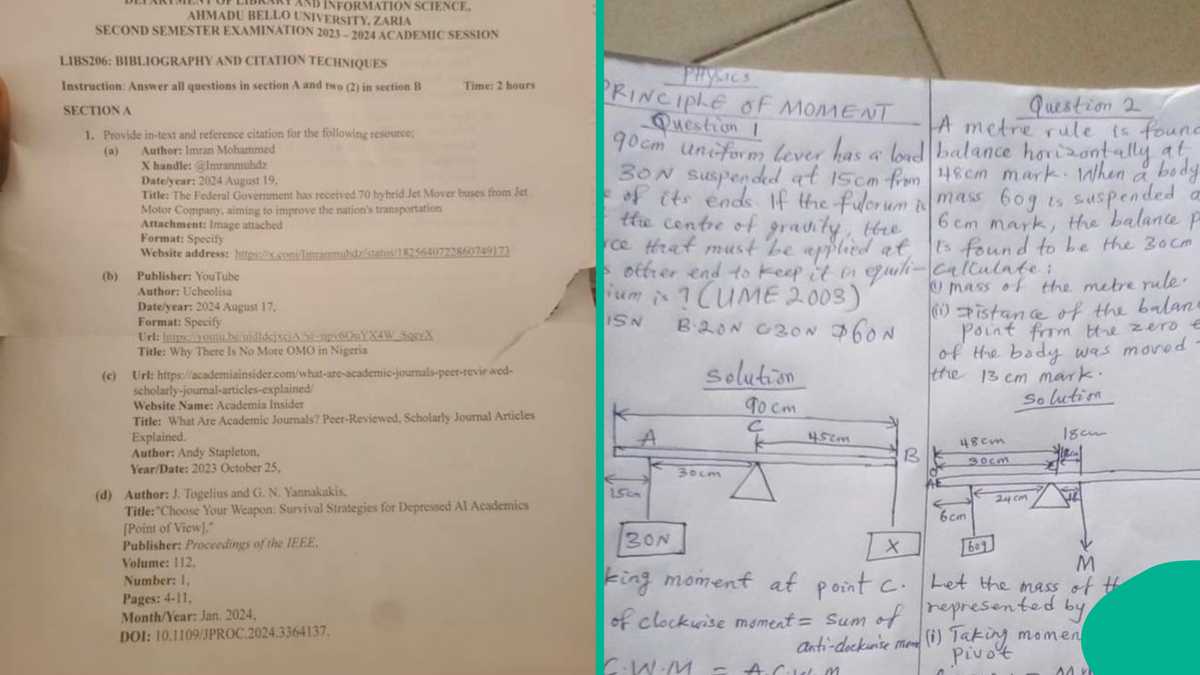 DEPARTMENT OF LIBRARY AND INFORMATION SCIENCE,
AHMADU BELLO UNIVERSITY, ZARIA
SECOND SEMESTER EXAMINATION 2023 – 2024 ACADEMIC SESSION
LIBS206: BIBLIOGRAPHY AND CITATION TECHNIQUES
Instruction: Answer all questions in section A and two (2) in section B Time: 2 hours
SECTION A
1. Provide in-text and reference citation for the following resource;
(a) Author: Imran Mohammed
X handle: @Imranmuhdz
Date/year: 2024 August 19,
Title: The Federal Government has received 70 hybrid Jet Mover buses from Jet
Motor Company, aiming to improve the nation's transportation
Attachment: Image attached
Format: Specify
Website address: https://x.com/Imranmuhdz/status/1825640722860749173
(b) Publisher: YouTube
Author: Ucheolisa
Date/year: 2024 August 17,
Format: Specify
Url:
Title: Why There Is No More OMO in Nigeria
(c) Url: https://academiainsider.com/what-are-academic-journals-peer-reviewed-
scholarly-journal-articles-explained/
Website Name: Academia Insider
Title: What Are Academic Journals? Peer-Reviewed, Scholarly Journal Articles
Explained.
Author: Andy Stapleton,
Year/Date: 2023 October 25,
(d) Author: J. Togelius and G. N. Yannakakis,
Title:"Choose Your Weapon: Survival Strategies for Depressed AI Academics
[Point of View],"
Publisher: Proceedings of the IEEE,
Volume: 112,
Number: 1,
Pages: 4-11,
Month/Year: Jan. 2024,
DOI: 10.1109/JPROC.2024.3364137.
Physics
PRINCIPLE OF MOMENT
Question 1
90cm uniform lever has a load
30N suspended at 15cm from
of its ends. If the fulcrum is
the centre of gravity, the
rce that must be applied at
s other end to keep it in equili-
ium is ? (UME 2003)
15N B.20N C30N D60N
Solution
90cm
A C 45cm B
30cm
15cm
30N X
king moment at point C.
of clockwise moment = sum of
anti-clockwise mome
C.W.M = A.C.W.M
Question 2
A metre rule is found
balance horizontally at
48cm mark. When a body
mass 60g is suspended a
6cm mark, the balance p
is found to be the 30cm
Calculate:
(i) mass of the metre rule.
(ii) Distance of the balan
point from the zero e
of the body was moved
the 13cm mark.
Solution
48cm 18cm
30cm
24cm
6cm
60g
M
Let the mass of th
represented by
(i) Taking momen
pivot